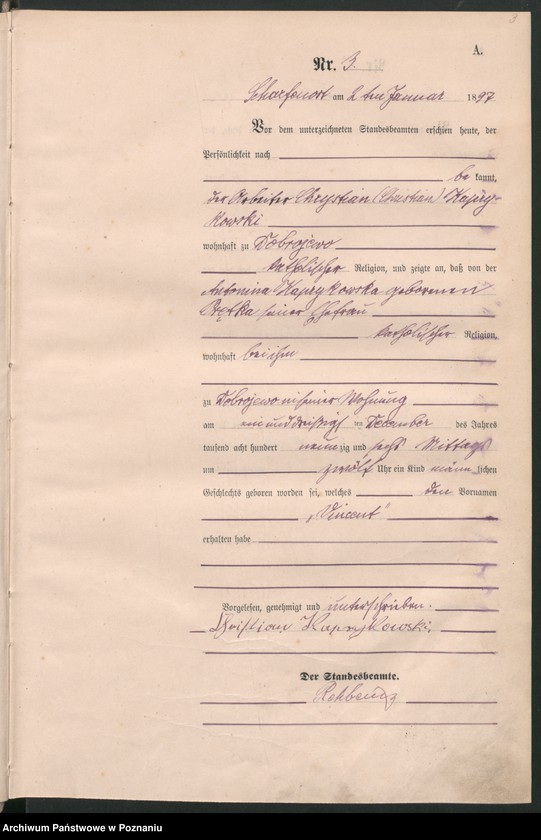 3
A.
Nr. 3.
Scharfenort am 2ten Januar 1897
Vor dem unterzeichneten Standesbeamten erschien heute, der
Persönlichkeit nach
be kannt,
der Arbeiter Chrystian (Christian) Kaprzy-
kowski
wohnhaft zu Dobrojewo
katholischer Religion, und zeigte an, daß von der
Antonina Kaprzykowska geborenen
seiner Ehefrau
katholischer Religion,
wohnhaft bei ihm
zu Dobrojewo in seiner Wohnung
am einunddreißigst en December des Jahres
tausend acht hundert neunzig und sechs Mittags
um zwölf Uhr ein Kind männ lichen
Geschlechts geboren worden sei, welches den Vornamen
„Vincent"
erhalten habe
Vorgelesen, genehmigt und unterschrieben.
Christian Kaprzykowski.
Der Standesbeamte.
Archiwum Państwowe w Poznaniu